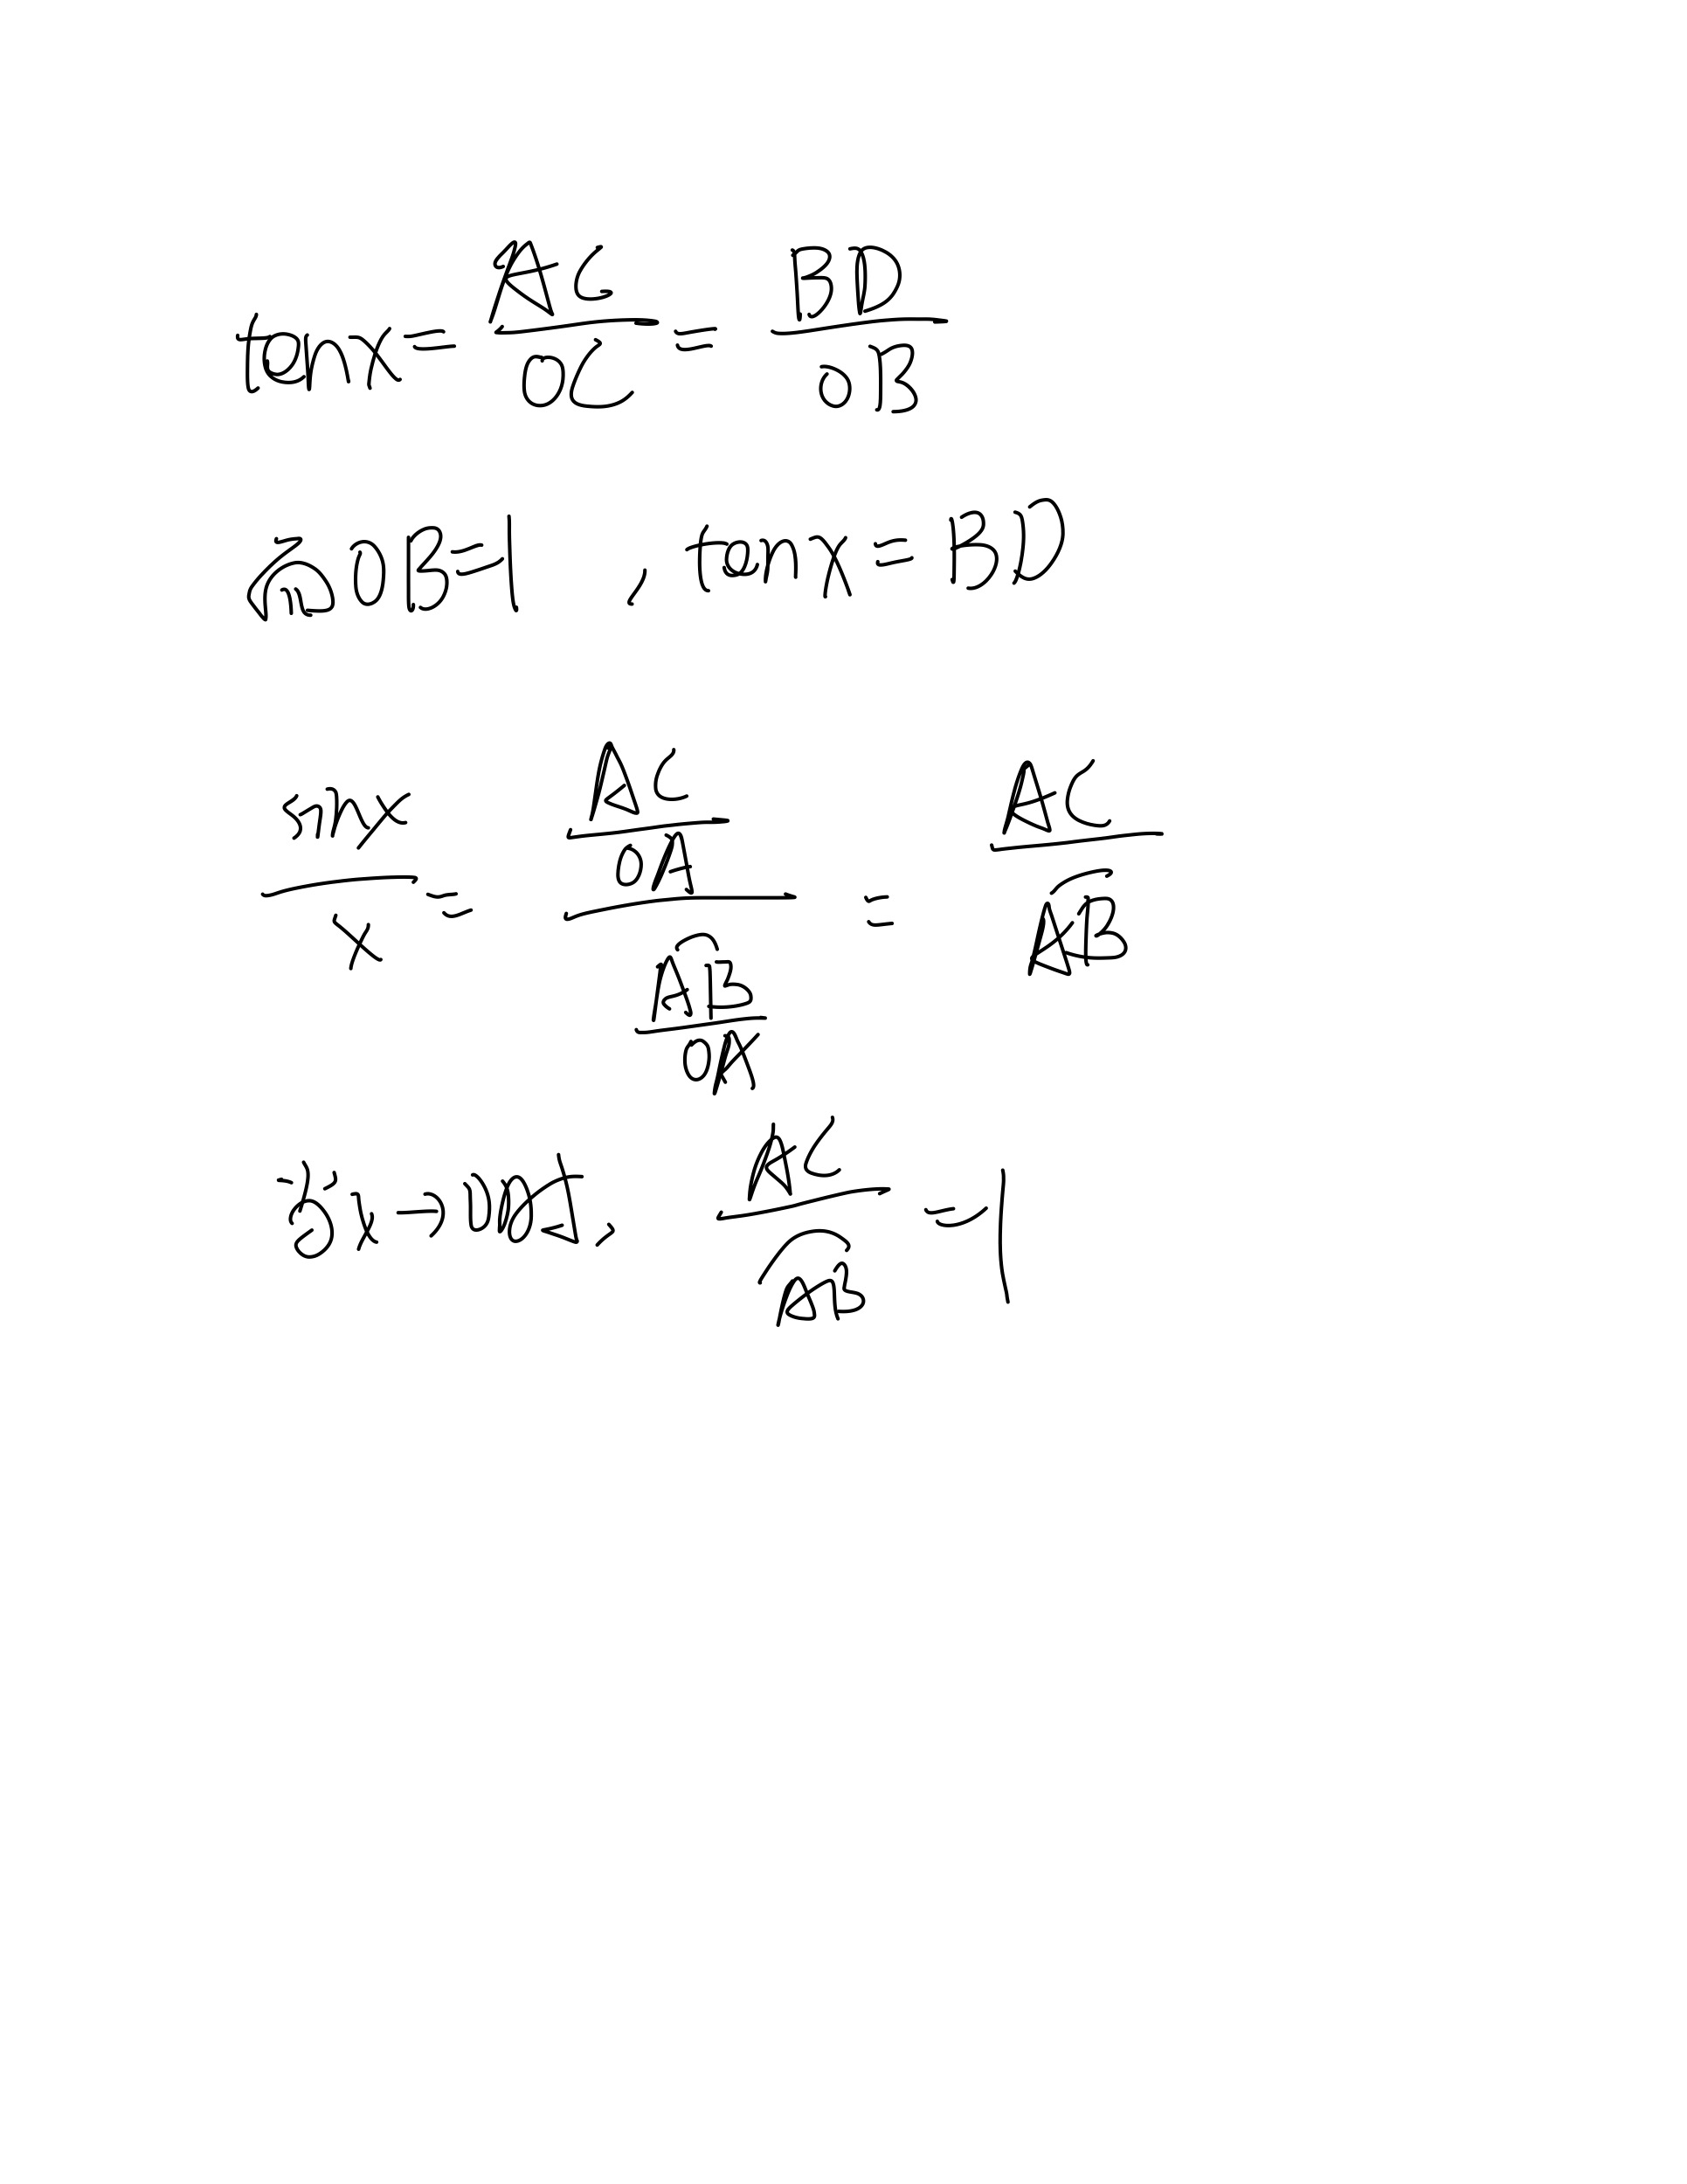 tanx = AC/OC = BD/OB
而OB=1, tanx = BD
sinx/x = (AC/OA)/(⌒AB/OA) = AC/⌒AB
当x→0时, AC/⌒AB = 1